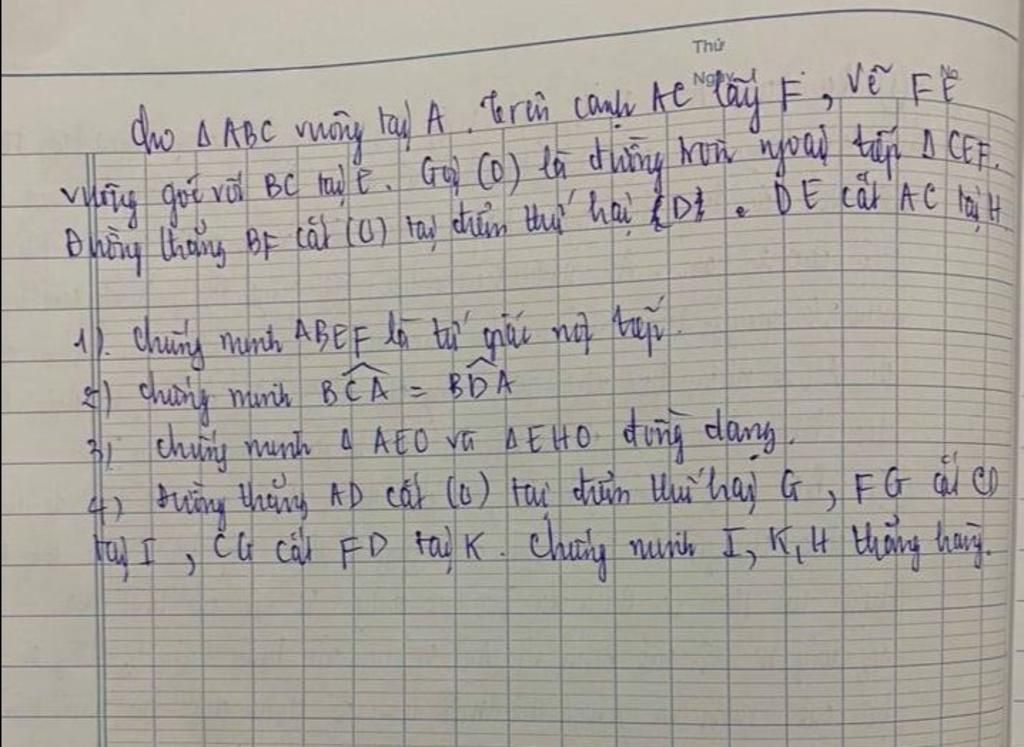 Thứ
Ngày
No
Cho Δ ABC vuông tại A. Trên cạnh AC lấy F, vẽ FE
vuông góc với BC tại E. Gọi (O) là đường tròn ngoại tiếp Δ CEF.
Đường thẳng BF cắt (O) tại điểm thứ hai D. DE cắt AC tại H
1). Chứng minh ABEF là tứ giác nội tiếp.
2) chứng minh \widehat{BCA} = \widehat{BDA}
3) chứng minh Δ AEO và ΔEHO đồng dạng.
4) Đường thẳng AD cắt (O) tại điểm thứ hai G, FG cắt CD
tại I, CG cắt FD tại K. Chứng minh I, K, H thẳng hàng.